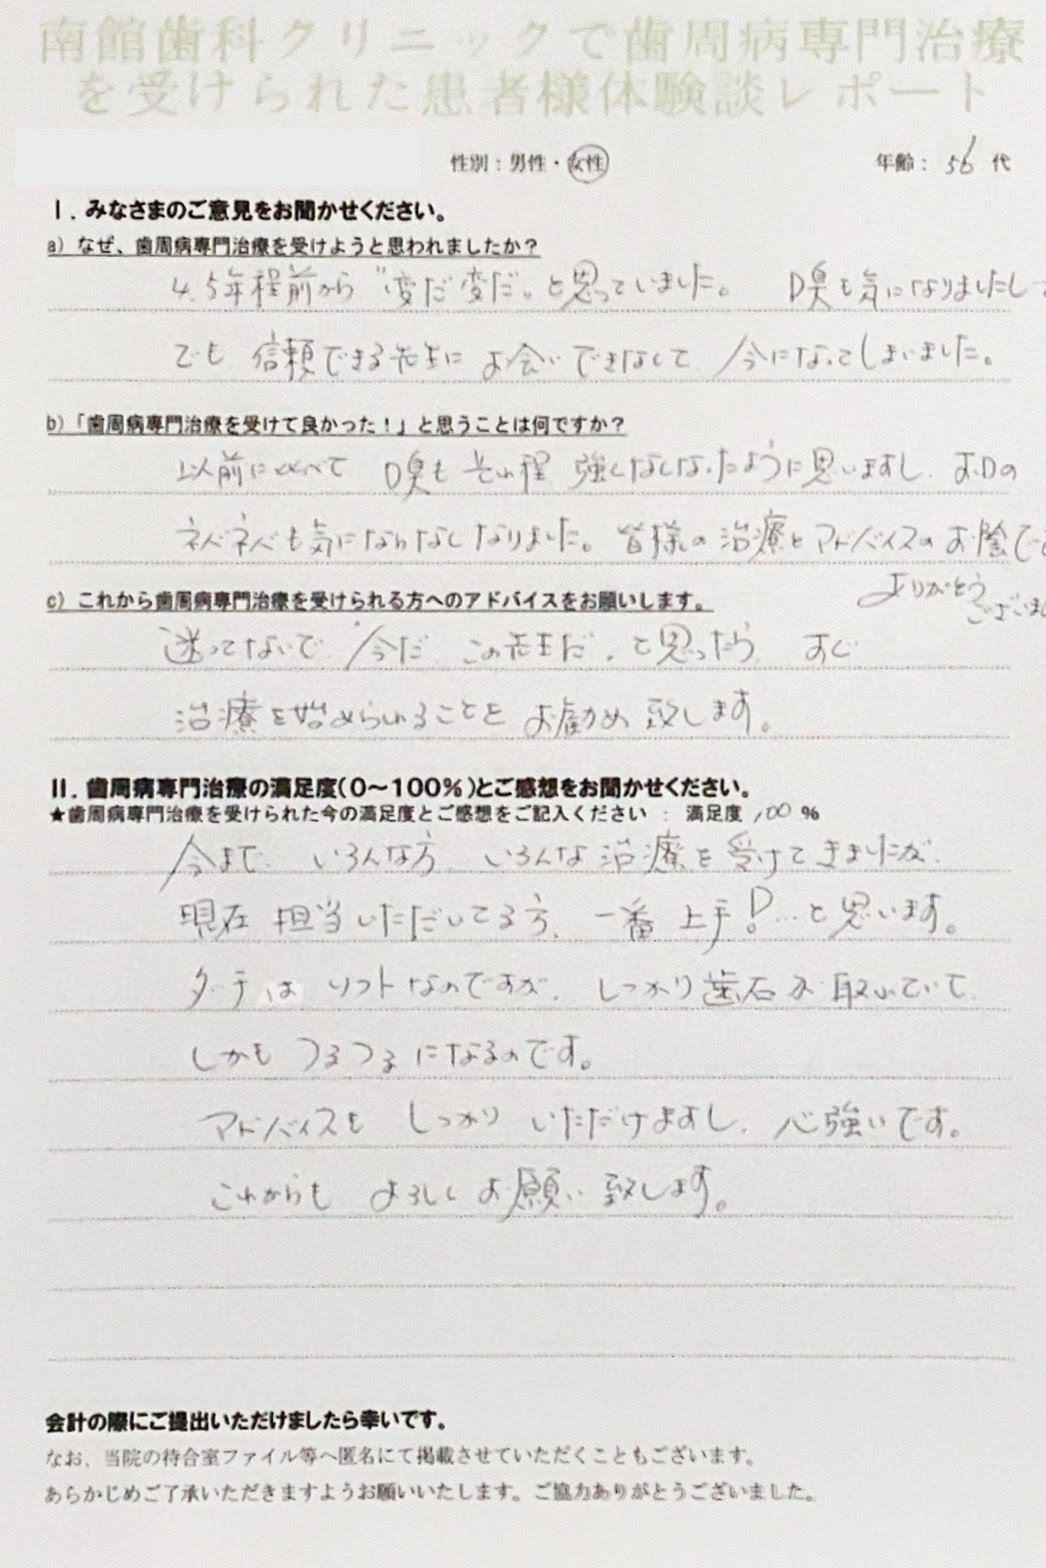 南館歯科クリニックで歯周病専門治療
を受けられた患者様体験談レポート
性別：男性・女性 年齢：56代
Ⅰ．みなさまのご意見をお聞かせください。
a）なぜ、歯周病専門治療を受けようと思われましたか？
4.5年程前から"変だ変だ"と思っていました。 口臭も気になりましたして
でも 信頼できる先生に お会いできなくて 今になってしまいました。
b）「歯周病専門治療を受けて良かった！」と思うことは何ですか？
以前に比べて 口臭も それ程 強くなくなったように思いますし、お口の
ネバネバも気にならなくなりました。皆様の治療とアドバイスのお陰です
ありがとう
ございまし
c）これから歯周病専門治療を受けられる方へのアドバイスをお願いします。
迷ってないで、今だ この先生だ、と思ったら すぐ
治療を始められることを お勧め致します。
Ⅱ．歯周病専門治療の満足度（0～100％）とご感想をお聞かせください。
★歯周病専門治療を受けられた今の満足度とご感想をご記入ください ： 満足度 100 ％
今まで いろんな方、いろんな治療を受けてきましたが、
現在 担当いただいてる方、一番 上手！…と思います。
タッチは ソフトなのですが、しっかり歯石が取れていて、
しかも つるつるになるのです。
アドバイスも しっかり いただけますし、心強いです。
これからも よろしくお願い致します。
会計の際にご提出いただけましたら幸いです。
なお、当院の待合室ファイル等へ匿名にて掲載させていただくこともございます。
あらかじめご了承いただきますようお願いいたします。ご協力ありがとうございました。